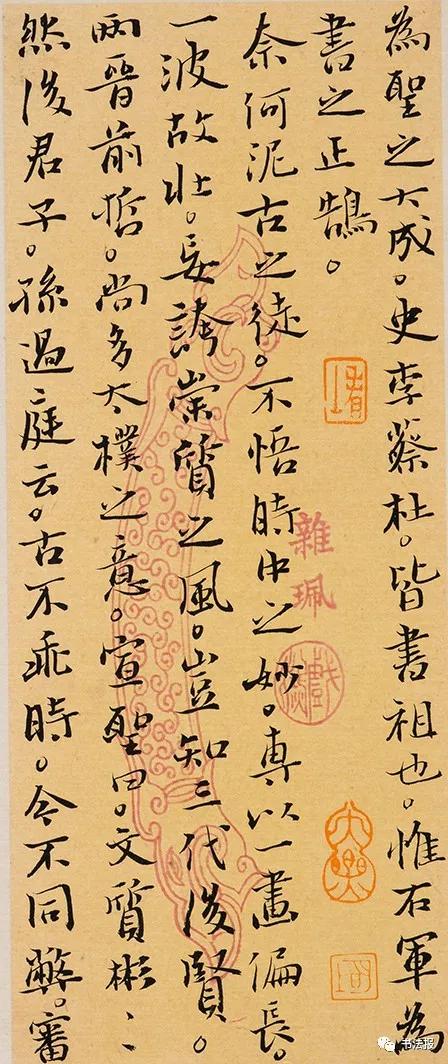 為聖之大成。史李蔡杜。皆書祖也。惟右軍為
書之正鵠。
奈何泥古之徒。不悟時中之妙。專以一畫偏長。
一波故壯。妄誇崇質之風。豈知三代後賢。
兩晉前哲。尚多太樸之意。宣聖曰。文質彬〻
然後君子。孫過庭云。古不乖時。今不同弊。審
雜珮
书法报